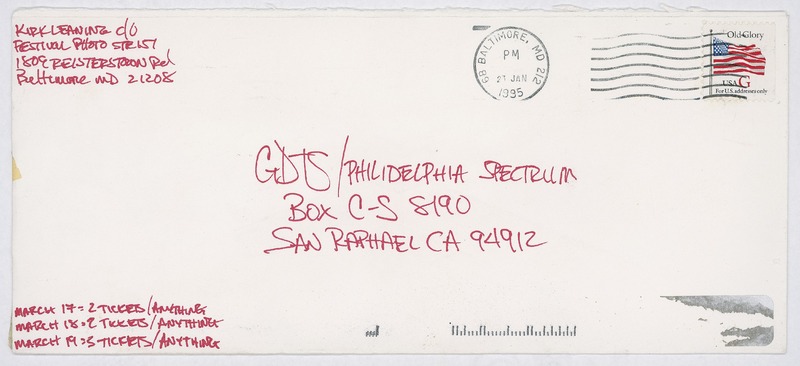 KIRK LEANING c/o
FESTIVAL PHOTO STE 157
1809 REISTERSTOWN Rd
Baltimore MD 21208
GB BALTIMORE, MD 212
PM
21 JAN
1995
Old Glory
USA G
For U.S. addresses only
GDTS/PHILIDELPHIA SPECTRUM
BOX C-S 8190
SAN RAPHAEL CA 94912
MARCH 17 = 2 TICKETS/ANYTHING
MARCH 18 = 2 TICKETS/ANYTHING
MARCH 19 = 3 TICKETS/ANYTHING